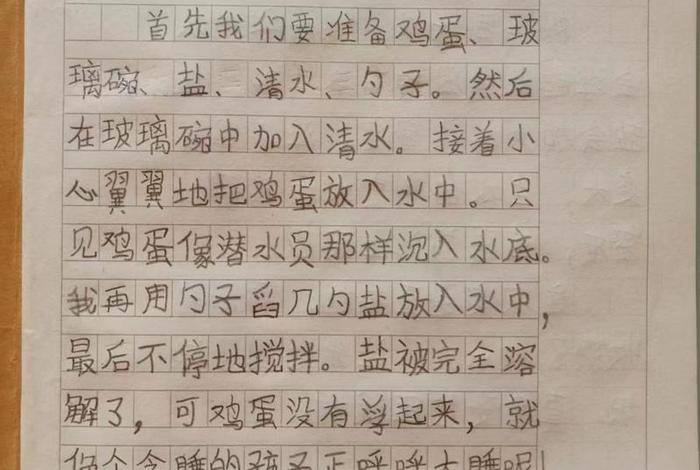 首先我们要准备鸡蛋、玻
璃碗、盐、清水、勺子。然后
在玻璃碗中加入清水。接着小
心翼翼地把鸡蛋放入水中。只
见鸡蛋像潜水员那样沉入水底。
我再用勺子舀几勺盐放入水中，
最后不停地搅拌。盐被完全溶
解了，可鸡蛋没有浮起来，就
像个贪睡的孩子正呼呼大睡呢！